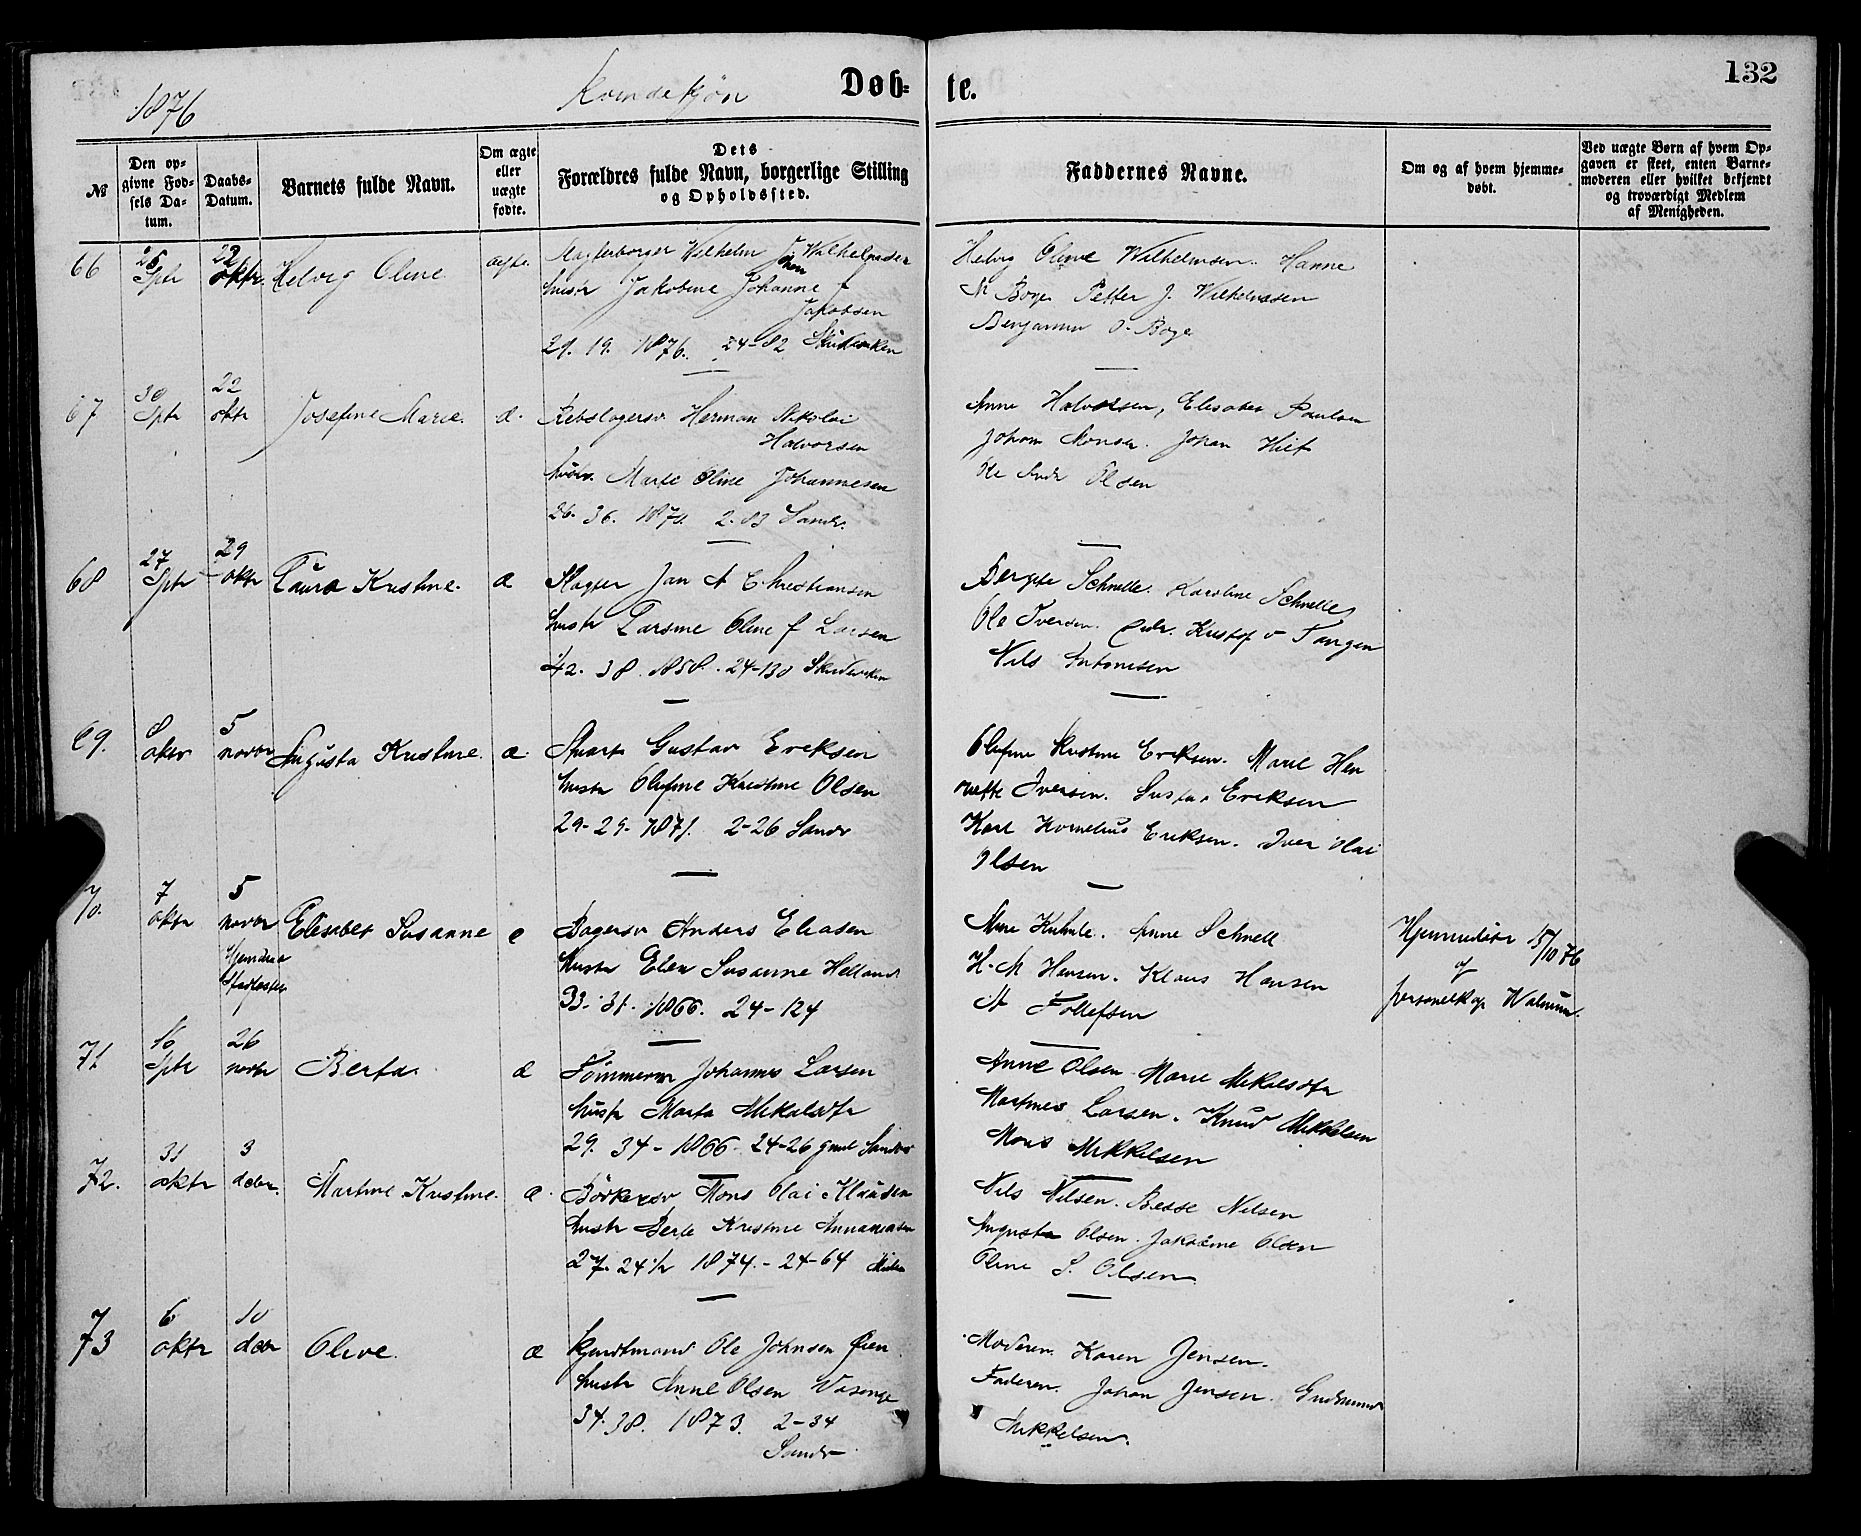 1876
Kvindekjøn
Døb-
te.
132
№
Den op-
givne Fød-
sels Da-
tum.
Daabs-
Datum.
Barnets fulde Navn.
Om ægte
eller
uægte
fødte.
Dets
Forældres fulde Navn, borgerlige Stilling
og Opholdssted.
Faddernes Navne.
Om og af hvem hjemme-
døbt.
Ved uægte Børn af hvem Op-
gaven er skeet, enten Barne-
moderen eller hvilket bekjendt
og troværdigt Medlem
af Menigheden.
66
Sptr
22
oktr
Helvig Oline
ægte
Wilhelm J Wilhelmsen
hustr Jakobine Johanne f
Jakobsen
29. 19. 1876. 24-82
Helvig Oline Wilhelmsen. Hanne
M Boge Petter J. Wilhelmsen
Benjamin O. Boge
67
30
Sptr
22
oktr
Josefine Marie.
æ.
Herman Nikolai
Halvorsen
hustr. Marte Oline Johannesen
26. 36. 2-83 Sandv.
Anne Halvorsen, Elisabet Paulsen
Johan Monsen. Johan
Ole Andr Olsen
68
27
Sptr
29
oktr
Laura Kristine.
æ
Slagter Jan A Christiansen
hustr Larsine Oline f Larsen
42. 38. 1858. 24-130
Bergete Schnelle. Karoline Schnelle
Ole Iversen. Kristof v Tangen
Nils Antonisen
69.
8
oktr
5
novbr
Augusta Kristine.
æ.
Gustav Eriksen
hustr Olufine Kristine Olsen
29-29-1871. 2-26 Sandv
Olufine Kristine Eriksen. Marie Hen
riette Iversen. Gustav Eriksen
Karl Kornelius Eriksen. Iver Olai
Olsen
70.
7
oktr
5
novbr
Elisabet Susanne
Bagersv Anders Eliasen
hustr Elen Susanne Helland
33. 31. 1866. 24-124
Anne Schnell
H. M Hansen. Klaus Hansen
M Tollefsen
Hjemmedøbt 15/10 76
af
personelkap
71
16
Sptr
26
novbr
Berta.
æ
Tømmerm Johannes Larsen
hustr Marta Mikalsdtr
29. 34-1866. 24-26
Anne Olsen Marie Mikalsdtr
Martines Larsen. Knud Mikkelsen
Mons Mikkelsen
72.
31
oktr
3
decbr.
Martine Kristine.
æ.
Bødkersv Mons Olai Klausen
hustr Berte Kristine
27. 24½ 1874.-24-64
Nils Nilsen. Besse Nilsen
Augusta Olsen. Jakobine Olsen
Oline S. Olsen
73
6
oktr
10
decbr
Olive.
æ
Ole Johnsen Øien
hustr Anne Olsen
34. 38. 1873. 2-34
Sandv
Moderen. Karen Jensen.
Faderen. Johan Jensen. Gudmund
Mikkelsen.